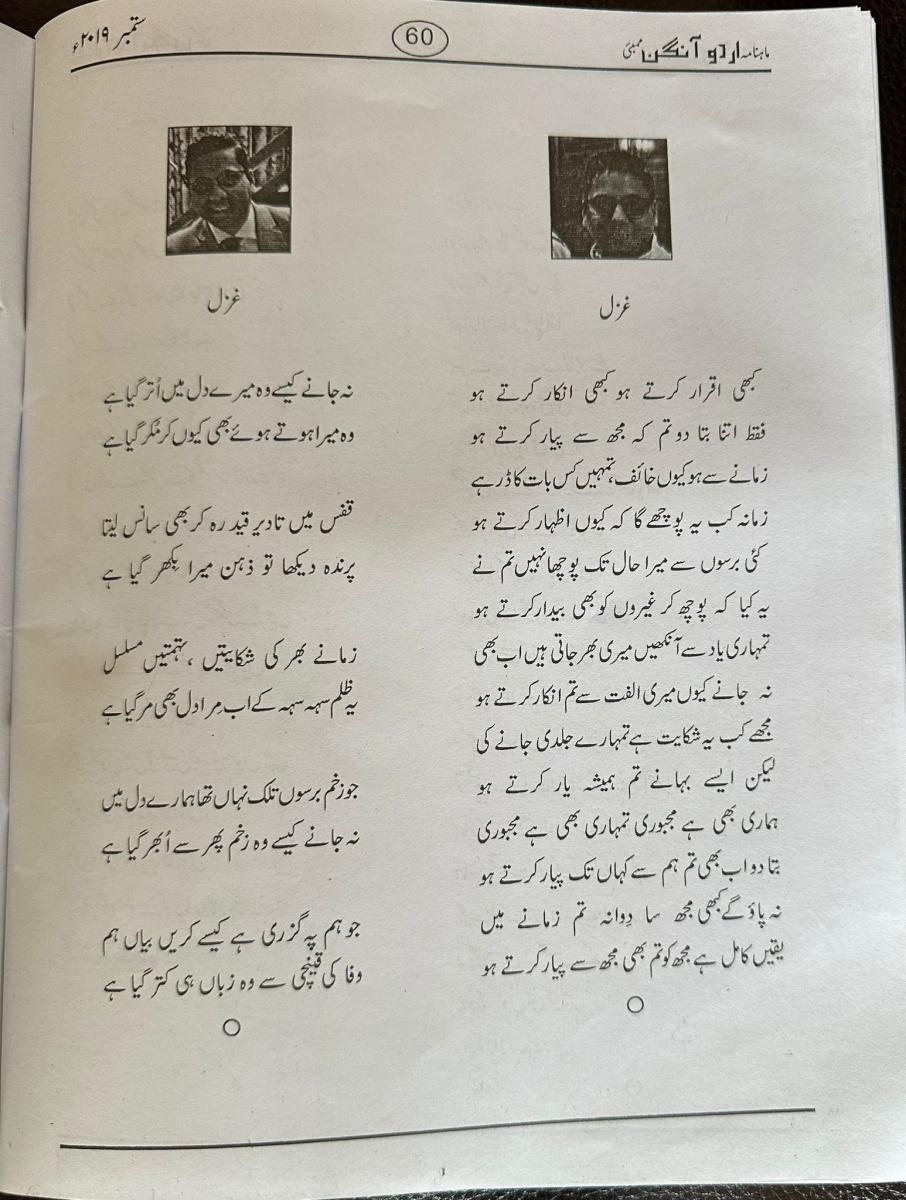 ماہنامہ اردو آنگن ممبئی
60
ستمبر ۲۰۱۹ء
غزل
کبھی اقرار کرتے ہو کبھی انکار کرتے ہو
فقط اتنا بتا دو تم کہ مجھ سے پیار کرتے ہو
زمانے سے ہو کیوں خائف، تمہیں کس بات کا ڈر ہے
زمانہ کب یہ پوچھے گا کہ کیوں اظہار کرتے ہو
کئی برسوں سے میرا حال تک پوچھا نہیں تم نے
یہ کیا کہ پوچھ کر غیروں کو بھی بیدار کرتے ہو
تمہاری یاد سے آنکھیں میری بھر جاتی ہیں اب بھی
نہ جانے کیوں میری الفت سے تم انکار کرتے ہو
مجھے کب یہ شکایت ہے تمہارے جلدی جانے کی
لیکن ایسے بہانے تم ہمیشہ یار کرتے ہو
ہماری بھی ہے مجبوری تمہاری بھی ہے مجبوری
بتا دو اب بھی تم ہم سے کہاں تک پیار کرتے ہو
نہ پاؤ گے کبھی مجھ سا دِوانہ تم زمانے میں
یقیں کامل ہے مجھ کو تم بھی مجھ سے پیار کرتے ہو
غزل
نہ جانے کیسے وہ میرے دل میں اُتر گیا ہے
وہ میرا ہوتے ہوئے بھی کیوں کر مُکر گیا ہے
قفس میں تادیر قید رہ کر بھی سانس لیتا
پرندہ دیکھا تو ذہن میرا بِکھر گیا ہے
زمانے بھر کی شکایتیں ، تہمتیں مسلسل
یہ ظلم سہہ سہہ کے اب مِرا دل بھی مر گیا ہے
جو زخم برسوں تلک نہاں تھا ہمارے دل میں
نہ جانے کیسے وہ زخم پھر سے اُبھر گیا ہے
جو ہم پہ گزری ہے کیسے کریں بیاں ہم
وفا کی قینچی سے وہ زباں ہی کتر گیا ہے